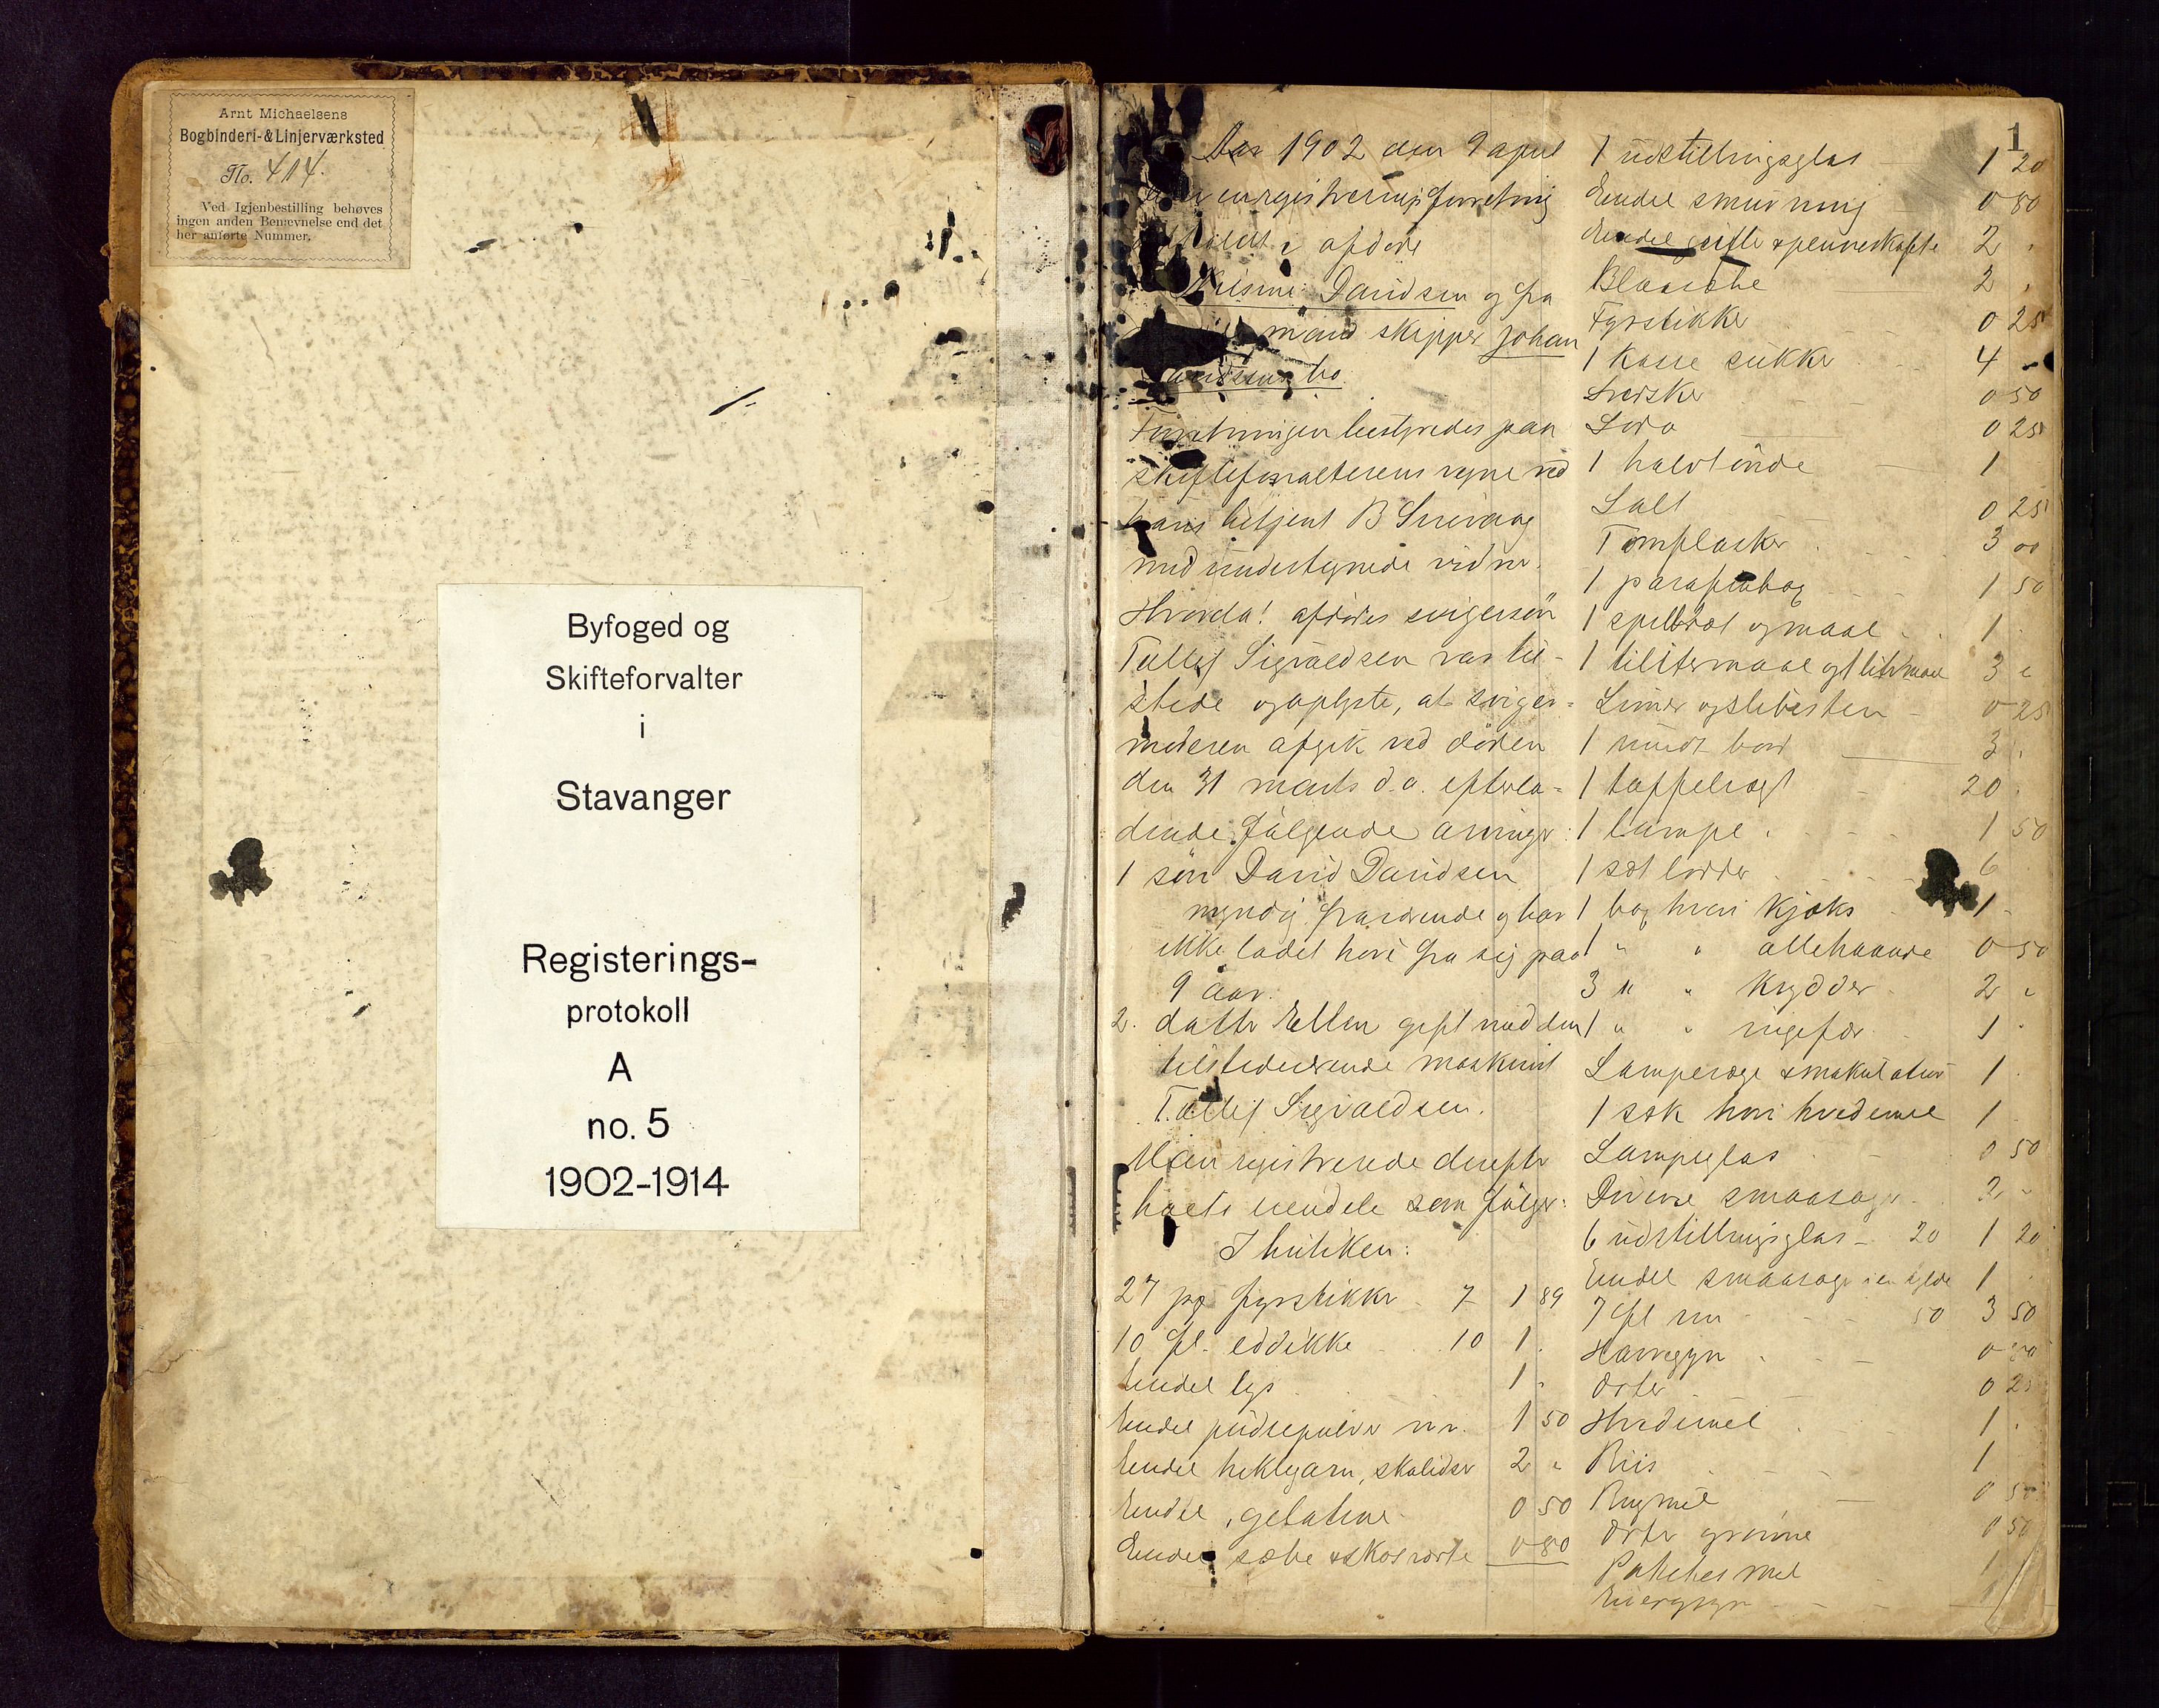 Arnt Michaelsens
Bogbinderi- & Linjerværksted
No. 414.
Ved Igjenbestilling behøves
ingen anden Benævnelse end det
her anførte Nummer.
Byfoged og
Skifteforvalter
i
Stavanger
Registerings-
protokoll
A
no. 5
1902-1914
1
Aar 1902 den 9 april
registreringsforretning
afdøde
Davidsen og fra
mand skipper Johan
Forretningen bestyredes paa
skifteforvalterens vegne ved
hans betjent B
med undertegnede vidner.
Hvorda! afdødes svigersøn
Tallef Sigvaldsen var til-
stede og oplyste, at sviger-
moderen afgik ved døden
den 31 marts d.a. efterla-
dende følgende arvinger:
1 søn David Davidsen
myndig fraværende og har
ikke ladet høre fra sig paa
9 aar.
2. datter Ellen gift med den
tilstedeværende maskinist
Tallef Sigvaldsen.
Man registrerede derefter
boets eiendele som følger:
I butiken:
27 pg fyrstikker 7 1 89
10 fl. eddikke 10 1
Endel lys 1
Endel pudsepulver m.v. 1 50
Endel heklegarn, skolidser 2
Endel gelatine 0 50
Endel sæbe & skosværte 0 80
1 udstillingsglas 1 20
Endel smurning 0 80
Endel grifler & penneskafte 2
Blanke 2
Fyrstikker 0 25
1 kasse sukker 4
Svedsker 0 50
Soda 0 25
1 halvtønde 1
Salt 0 25
Tomflasker 3 00
1 1 50
1 og maal 1
1 tilitermaal og 1 litermaal 3
og slibesten 0 25
1 rundt bord 3
1 taffelvægt 20
1 lampe 1 50
1 sæt lodder 6
1 hvori kjæks 1
1 " " allehaande 0 50
3 " " krydder 2
1 " " ingefær 1
Lampevæge & makulatur 1
1 sæk hvori hvedemel 1
Lampeglas 0 50
Diverse smaasager 2
6 udstillingsglas 20 1 20
Endel smaasager i en hylde 1
7 fl 50 3 50
Havregryn 0
Erter 0 25
Hvedemel 1
Riis 1
Rugmel 0 50
Erter grønne 0 50
Potetesmel 1